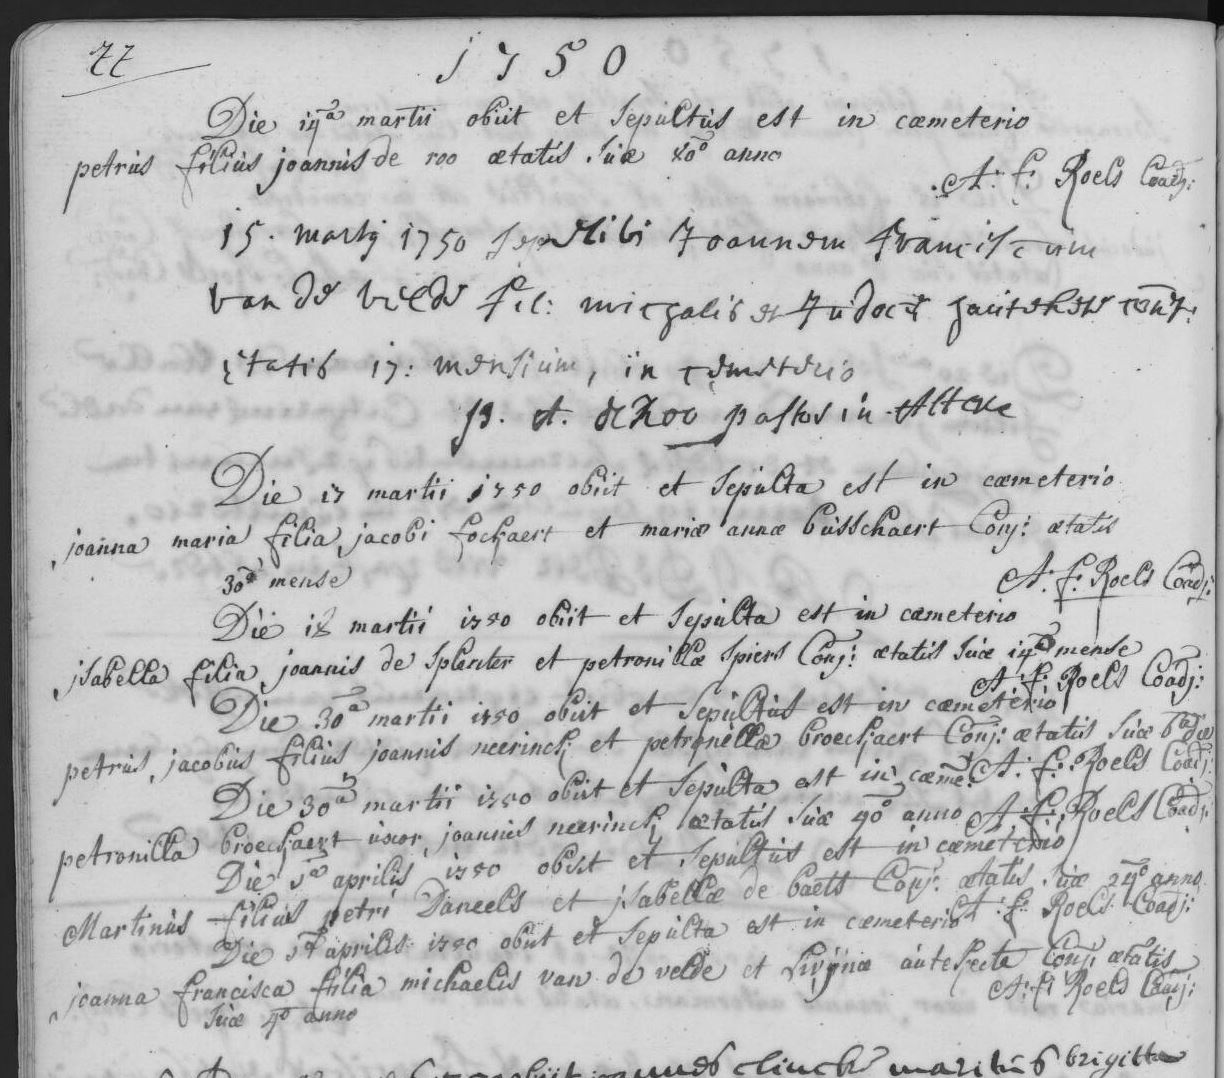 77
1750
Die 14a martii obiit et sepultus est in cæmeterio
petrus filius joannis de roo ætatis suæ 80o anno
A: f: Roels Coadj:
15. martij 1750 sepelibi Joannem franciscum
van de velde fil: michaelis et Judocæ hautekete conj:
ętatis 17: mensium, in cęmeterio
p. A. de Roo pastor in Altere
Die 17 martii 1750 obiit et sepulta est in cæmeterio
joanna maria filia jacobi fockaert et mariæ annæ busschaert Conj: ætatis
30a mense
A: f: Roels Coadj:
Die 18 martii 1750 obiit et sepulta est in cæmeterio
jsabella filia joannis de splenter et petronillæ spiers Conj: ætatis suæ 14o mense
A: f: Roels Coadj:
Die 30a martii 1750 obiit et sepultus est in cæmeterio
petrus jacobus filius joannis neerinck et petronellæ broeckaert Conj: ætatis suæ 6ta die
Die 30a martii 1750 obiit et sepulta est in cæme: A: f: Roels Coadj:
petronilla broeckaert uxor joannis neerinck ætatis suæ 40o anno A: f: Roels Coadj:
Die 5a aprilis 1750 obiit et sepultus est in cæmeterio
Martinus filius petri Daneels et jsabellæ de baets Conj: ætatis suæ 24o anno
A: f: Roels Coadj:
Die 5a aprilis 1750 obiit et sepulta est in cæmeterio
joanna francisca filia michaelis van de velde et Livijnæ autekete Conj: ætatis
A: f: Roels Coadj:
suæ 4o anno
obiit clincke maritus brigitte